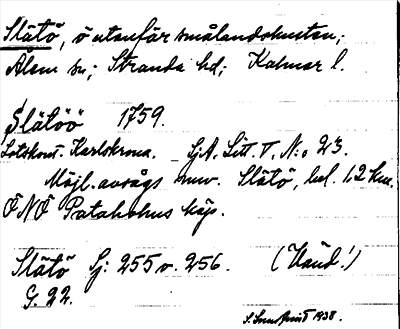 Slätö, ö utanför smålandskusten,
Ålem sn; Stranda hd; Kalmar l.
Slätöö 1759.
Lotskont. Karlskrona. SjA. Litt. T, N:o 23.
Möjl. avsågs nuv. Slätö, bel. 1,2 km.
ÖNÖ Pataholms köp.
Slätö Sj: 255 o. 256. (Uänd!)
G. 22.
1938.